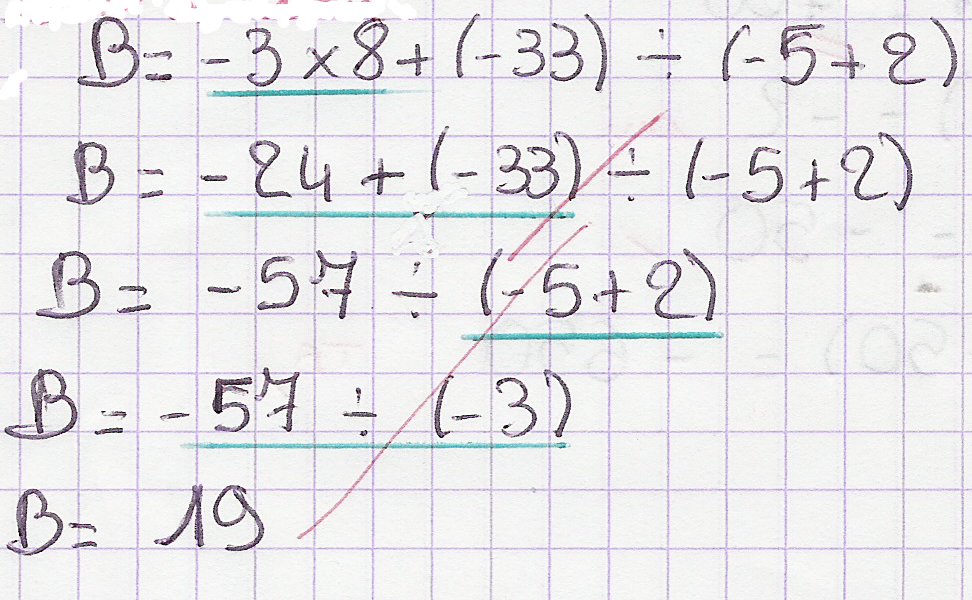 B = -3 × 8 + (-33) ÷ (-5 + 2)
B = -24 + (-33) ÷ (-5 + 2)
B = -57 ÷ (-5 + 2)
B = -57 ÷ (-3)
B = 19